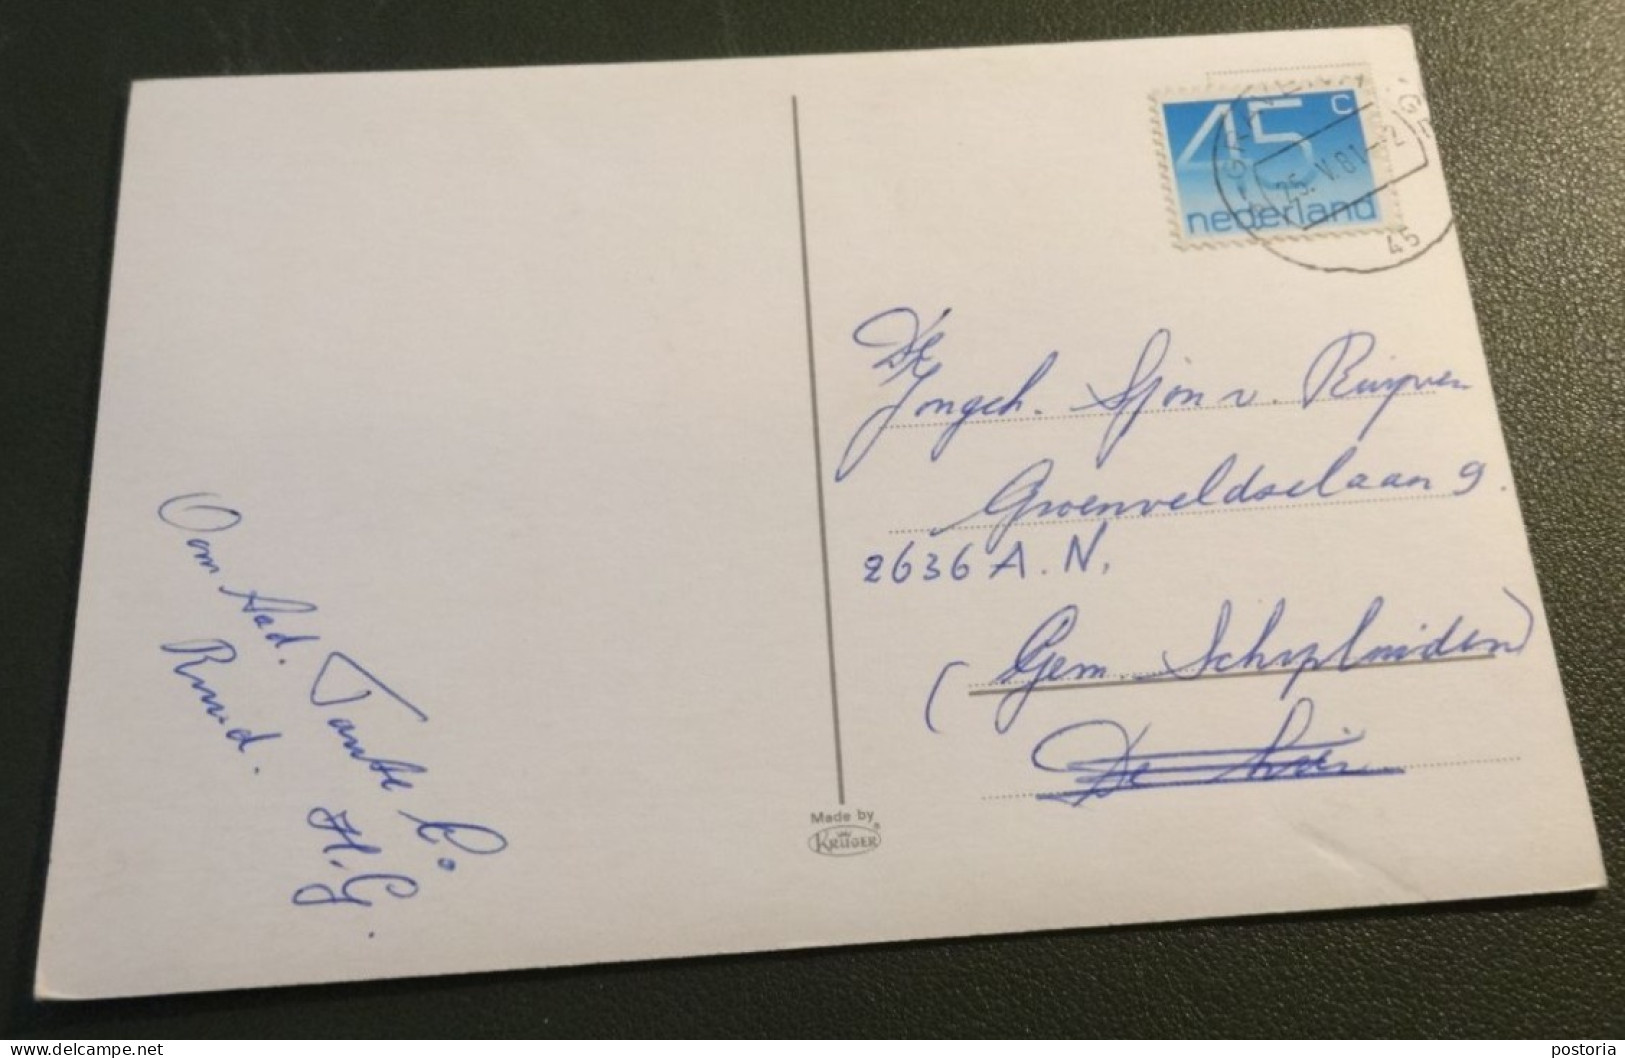 45 c
nederland
25.V.81-12
45
De
Jongeh. Sjon v. Ruyven
Groenveldselaan 9.
2636 A.N.
(Gem. Schipluiden)
De
Oom Aad. Tante Co
Ruud. H.G.
Made by
KRÜGER
delcampe.net
postoria